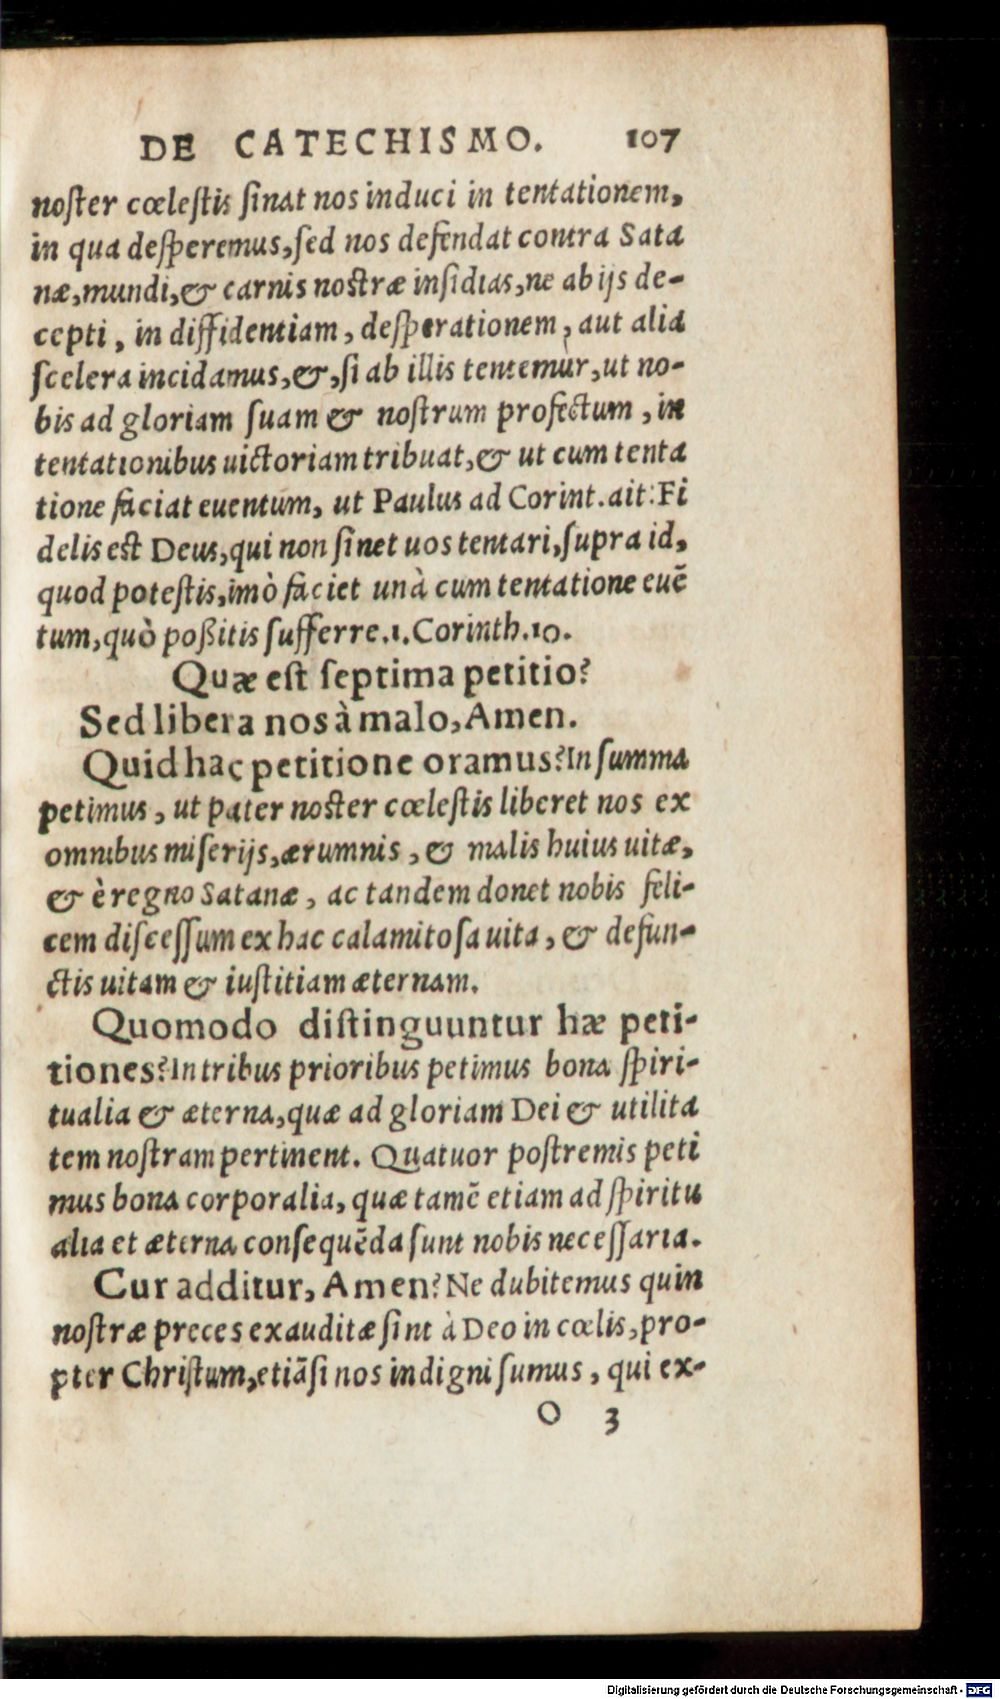 DE CATECHISMO. 107
noſter cœleſtis ſinat nos induci in tentationem,
in qua deſperemus,ſed nos defendat contra Sata
næ,mundi,& carnis noſtræ inſidias,ne ab ijs de-
cepti, in diffidentiam, deſperationem, aut alia
ſcelera incidamus,&,ſi ab illis tentemur,ut no-
bis ad gloriam ſuam & noſtrum profectum, in
tentationibus uictoriam tribuat,& ut cum tenta
tione faciat euentum, ut Paulus ad Corint. ait: Fi
delis eſt Deus,qui non ſinet uos tentari,ſupra id,
quod poteſtis,imò faciet unà cum tentatione euẽ
tum,quò poßitis ſufferre.1.Corinth.10.
Quæ eſt ſeptima petitio?
Sed libera nos à malo, Amen.
Quid hac petitione oramus? In ſumma
petimus, ut pater noſter cœleſtis liberet nos ex
omnibus miſerijs,ærumnis, & malis huius uitæ,
& è regno Satanæ, ac tandem donet nobis feli-
cem diſceſſum ex hac calamitoſa uita, & defun-
ctis uitam & iuſtitiam æternam.
Quomodo diſtinguuntur hæ peti-
tiones? In tribus prioribus petimus bona ſpiri-
tualia & æterna,quæ ad gloriam Dei & utilita
tem noſtram pertinent. Quatuor poſtremis peti
mus bona corporalia, quæ tamẽ etiam ad ſpiritu
alia et æterna conſequẽda ſunt nobis neceſſaria.
Cur additur, Amen? Ne dubitemus quin
noſtræ preces exauditæ ſint à Deo in cœlis,pro-
pter Chriſtum,etiãſi nos indigni ſumus, qui ex-
O 3
Digitalisierung gefördert durch die Deutsche Forschungsgemeinschaft - DFG